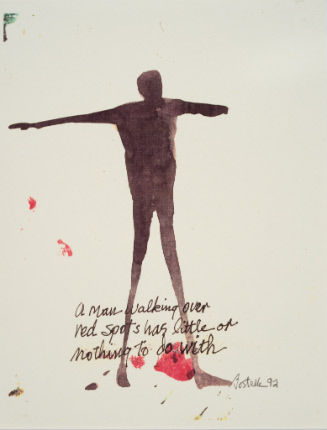 a man walking over
red spots has little or
nothing to do with
92